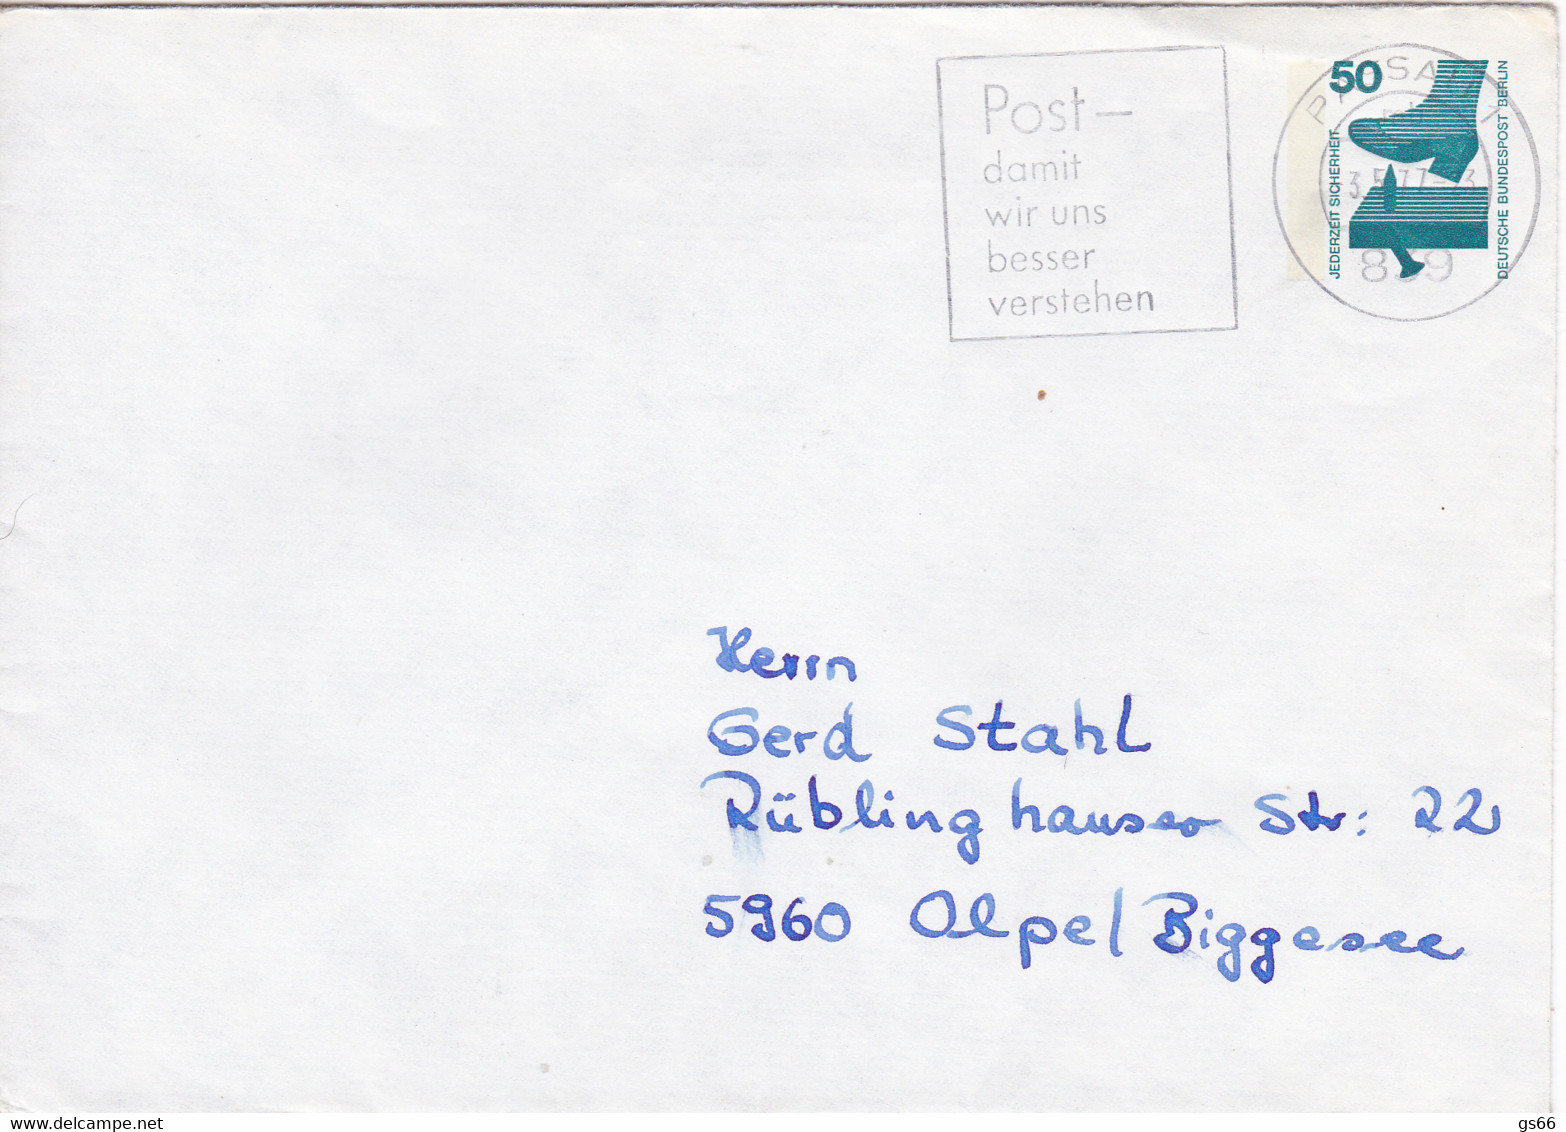 Post-
damit
wir uns
besser
verstehen
PASSAU 1
50
JEDERZEIT SICHERHEIT
DEUTSCHE BUNDESPOST BERLIN
839
Herrn
Gerd Stahl
Rüblinghauser Str: 22
5960 Olpe/Biggesee
www.delcampe.net
gs66